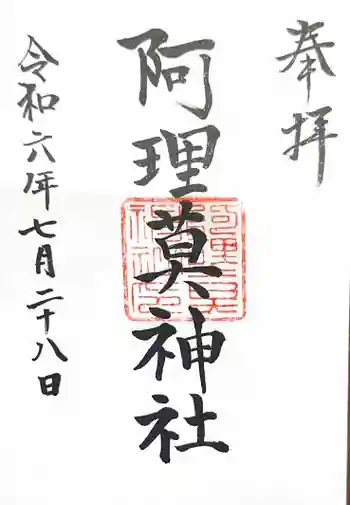 奉拝
阿理莫神社
令和六年七月二十八日